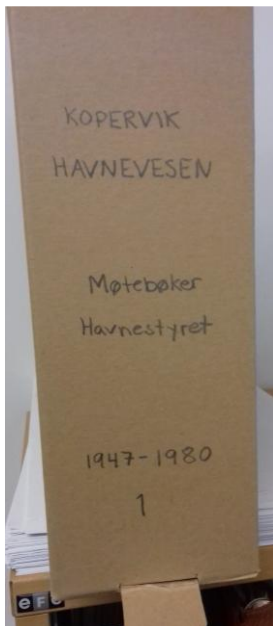 KOPERVIK
HAVNEVESEN
Møtebøker
Havnestyret
1947-1980
1
eFe